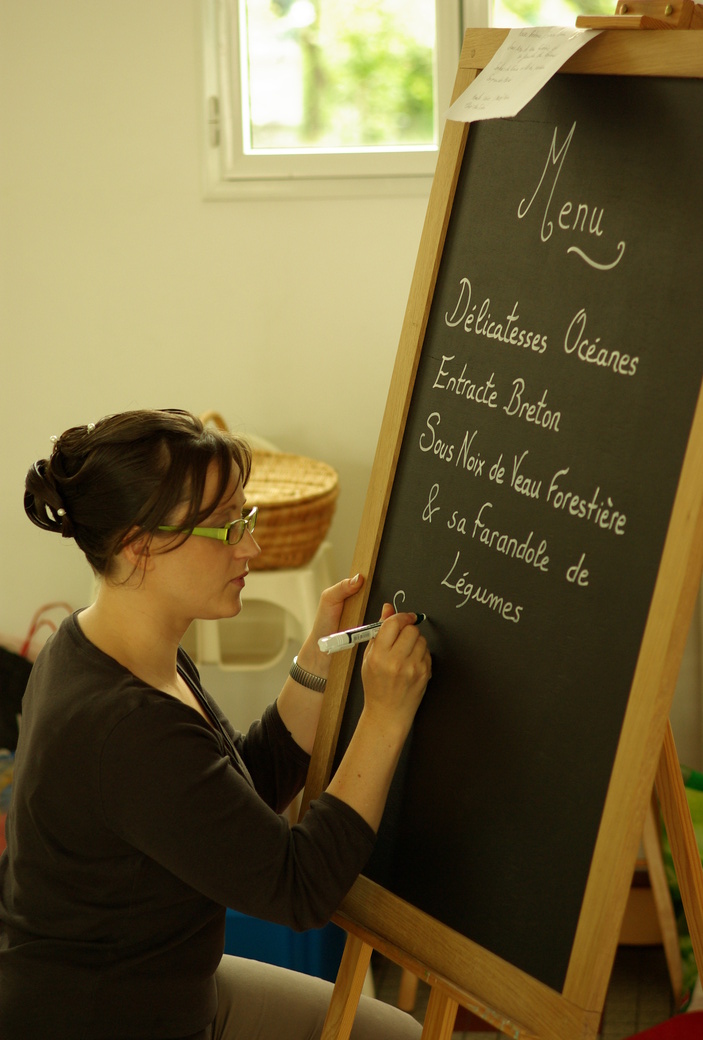 Menu
Délicatesses Océanes
Entracte Breton
Sous Noix de Veau Forestière
& sa farandole de
Légumes